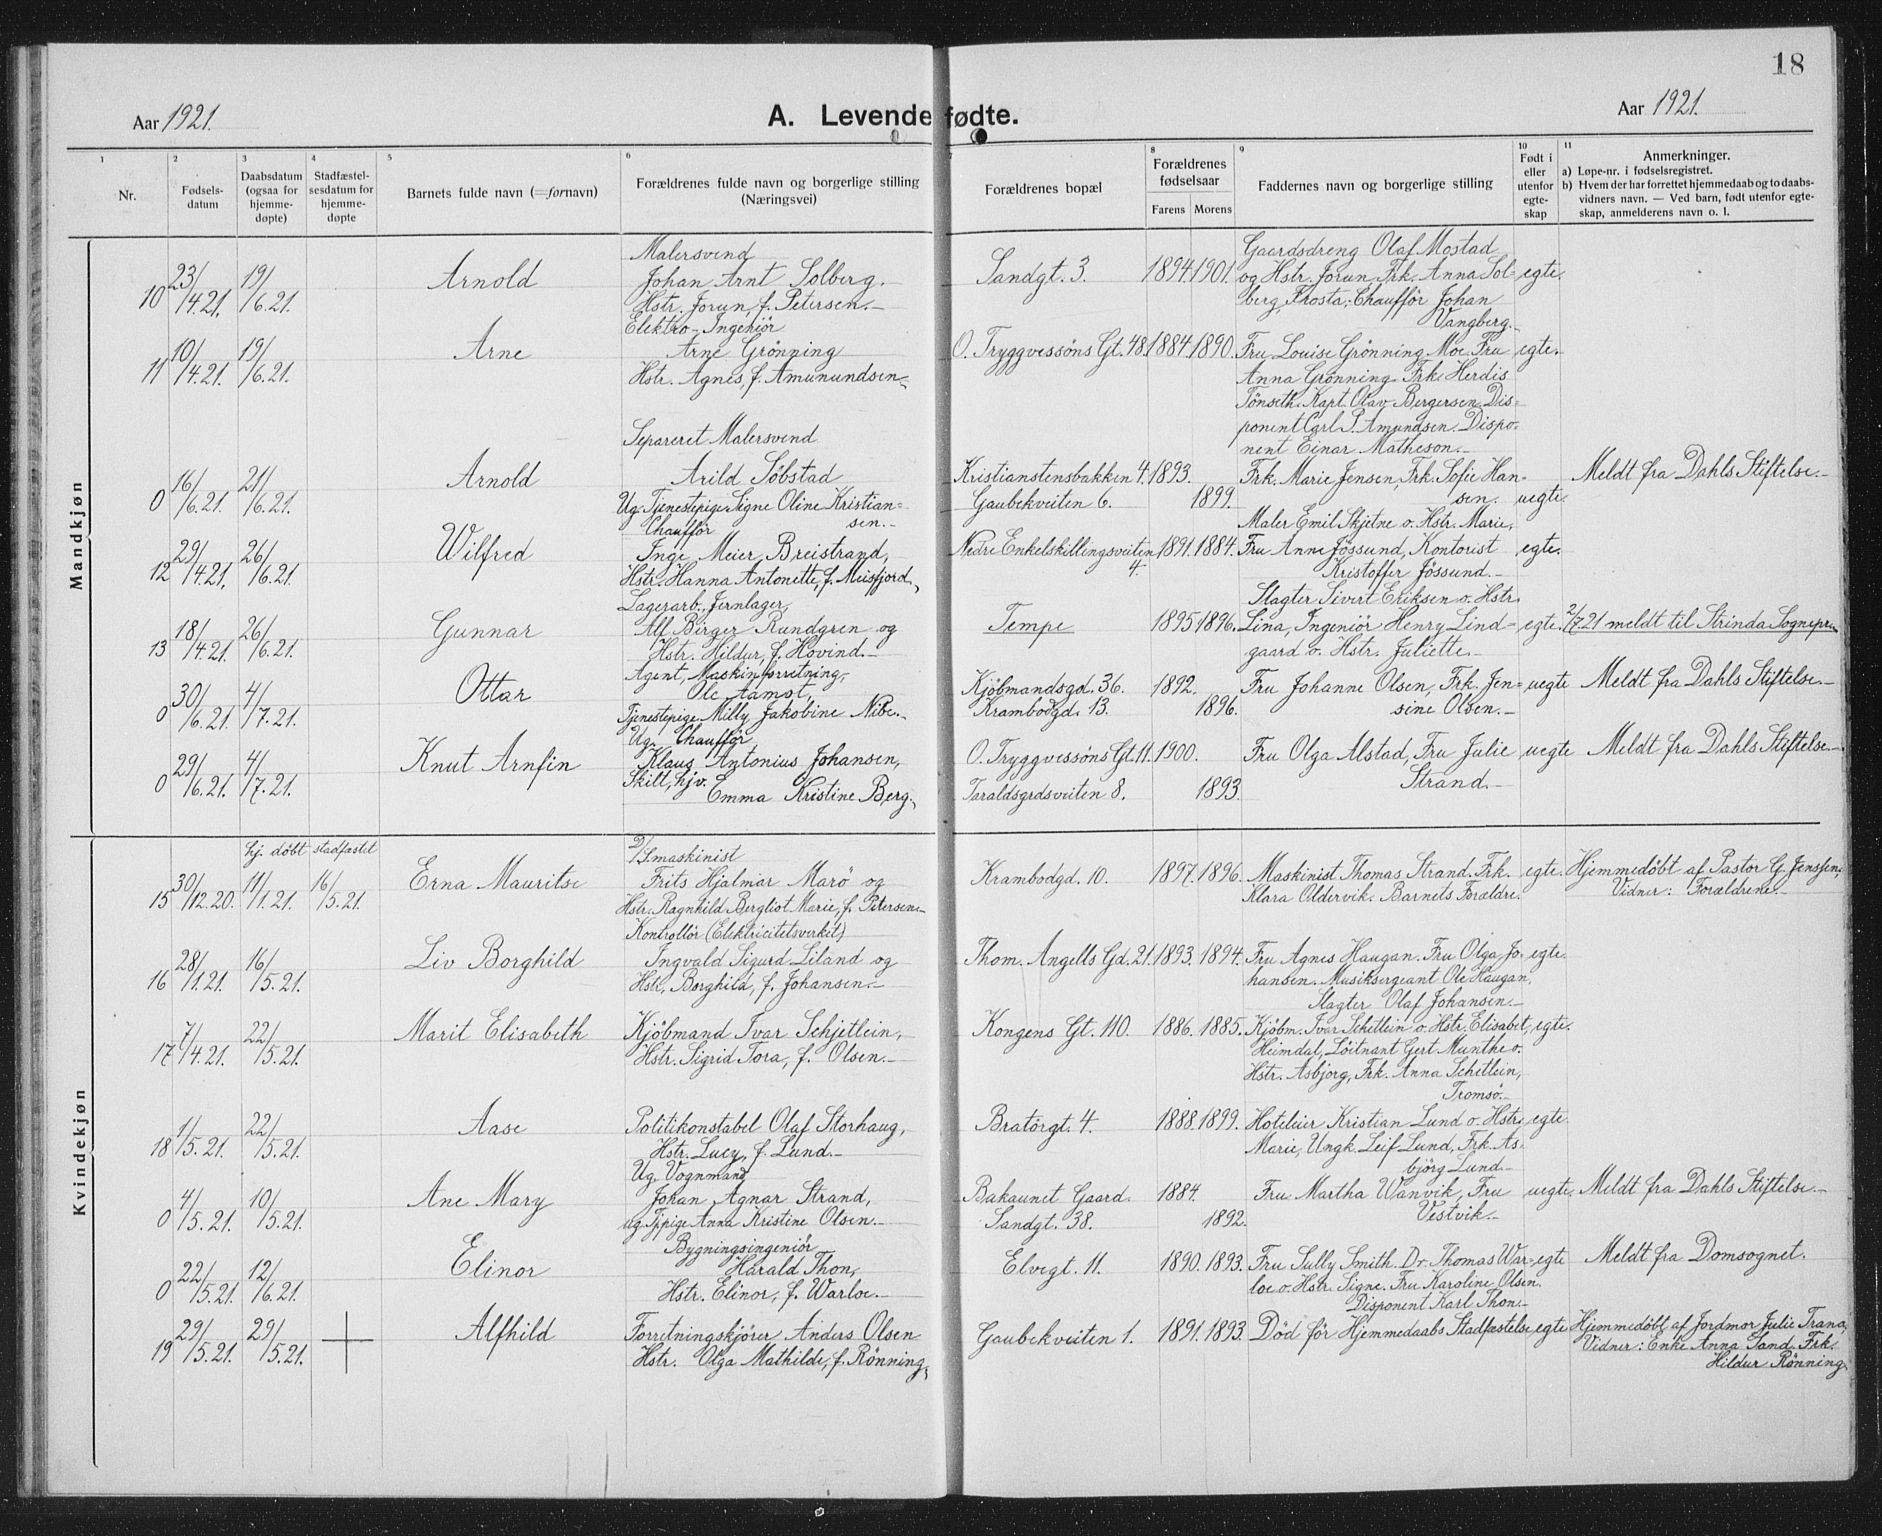 18
Aar 1921.
A. Levende fødte.
Aar 1921.
1 2 3 4 5 6 7 8 9 10 11
Nr.
Fødsels-
datum
Daabsdatum
(ogsaa for
hjemme-
døpte)
Stadfæstel-
sesdatum for
hjemme-
døpte
Barnets fulde navn (=fornavn)
Forældrenes fulde navn og borgerlige stilling
(Næringsvei)
Forældrenes bopæl
Forældrenes
fødselsaar
Farens Morens
Faddernes navn og borgerlige stilling
Født i
eller
utenfor
egte-
skap
Anmerkninger.
a) Løpe-nr. i fødselsregistret.
b) Hvem der har forrettet hjemmedaab og to daabs-
vidners navn. — Ved barn, født utenfor egte-
skap, anmelderens navn o. l.
Mandkjøn
10 23/4.21. 19/6.21. Arnold
Malersvend
Johan Arnt Solberg.
Hstr. Jorun, f. Petersen.—
Sandgt. 3. 1894. 1901.
Gaardsdreng Olaf Mostad
og Hstr. Jorun, Frk. Anna Sol-
berg, Frosta; Chauffør Johan
Vangberg.—
egte.
11 10/4.21. 19/6.21. Arne
Elektro-Ingeniør
Arne Grönning
Hstr. Agnes, f. Amunundsen—
O. Tryggvessöns Gt. 48. 1884. 1890.
Fru Louise Grönning Moe. Fru
Anna Grönning. Frk. Herdis
Tönseth. Kapt. Olav Bergersen. Dis-
ponent Carl P. Amundsen. Dispo-
nent Einar Matheson.—
egte.
0 16/6.21. 21/6.21. Arnold
Separeret Malersvend
Arild Söbstad
Ug. Tjenestepige Signe Oline Kristian-
sen.—
Kristianstensbakken 4. 1893.
Gaubekveiten 6. 1899.
Frk. Marie Jensen, Frk. Sofie Han-
sen.
uegte.
Meldt fra Dahls Stiftelse.—
12 29/4.21. 26/6.21. Wilfred
Chauffør
Inge Meier Breistrand,
Hstr. Hanna Antonette, f. Meisfjord.
Nedre Enkelskillingsveiten
4. 1891. 1884.
Maler Emil Skjetne o. Hstr. Marie,
Fru Anne Jössund, Kontorist
Kristoffer Jössund.—
egte.
13 18/4.21. 26/6.21. Gunnar
Lagerarb., Jernlager,
Alf Birger Rundgren og
Hstr. Hildur, f. Hovind.—
Tempe 1895. 1896.
Slagter Sivert Eriksen o. Hstr.
Lina, Ingeniør Henry Lind-
gaard o. Hstr. Juliette.—
egte.
2/7 21 meldt til Strinda Sognepr.
0 30/6.21. 4/7.21. Ottar
Agent, Maskinforretning,
Ole Aamot,
Tjenestepige Milly Jakobine Nibe.—
Kjöbmandsgd. 36. 1892.
Krambodgd. 13. 1896.
Fru Johanne Olsen, Frk. Jen-
sine Olsen.—
uegte
Meldt fra Dahls Stiftelse.—
0 29/6.21. 4/7.21. Knut Arnfin
Ug. Chauffør
Klaus Antonius Johansen,
Skilt, hjv.
Emma Kristine Berg.
O. Tryggvessöns Gt. 11. 1900.
Taraldsgrdsveiten 8. 1893.
Fru Olga Alstad, Fru Julie
Strand.—
uegte
Meldt fra Dahls Stiftelse.—
Kvindekjøn
hj. döbt stadfæstet
15 30/12.20. 11/1.21. 16/5.21. Erna Mauritse
D/S.maskinist
Frits Hjalmar Marö og
Hstr. Ragnhild Bergliot Marie, f. Petersen.—
Krambodgd. 10. 1897. 1896.
Maskinist Thomas Strand. Frk.
Klara Oldervik. Barnets Forældre.
egte.
Hjemmedöbt af Pastor G. Jenssen,
Vidner: Forældrene.—
16 28/1.21. 16/5.21. Liv Borghild
Kontrollör (Elektricitetsverket)
Ingvald Sigurd Liland og
Hstr. Borghild, f. Johansen.—
Thom. Angells Gd. 21. 1893. 1894.
Fru Agnes Haugan. Fru Olga Jo-
hansen. Musiksergeant Ole Haugan,
Slagter Olaf Johansen.—
egte.
17 7/4.21. 22/5.21. Marit Elisabeth
Kjöbmand Ivar Schjetlein,
Hstr. Sigrid Tora, f. Olsen.—
Kongens Gt. 110. 1886. 1885.
Kjöbm. Ivar Schetlein o. Hstr. Elisabet,
Heimdal, Löitnant Gert Munthe o.
Hstr. Asbjorg, Frk. Anna Schetlein,
Tromsö.—
egte.
18 1/5.21. 22/5.21. Aase
Politikonstabel Olaf Storhaug,
Hstr. Lucy, f. Lund.—
Bratörgt. 4. 1888. 1899.
Hoteleier Kristian Lund o. Hstr.
Marie, Ungk. Leif Lund, Frk. As-
björg Lund.—
egte.
0 4/5.21. 10/5.21. Ane Mary
Ug. Vognmand
Johan Agnar Strand,
ug. Tjpige Anna Kristine Olsen.—
Bakaunet Gaard. 1884.
Sandgt. 38. 1892.
Fru Martha Wanvik, Fru
Vestvik.—
uegte.
Meldt fra Dahls Stiftelse.—
0 22/5.21. 12/6.21. Elinor
Bygningsingeniør
Harald Thon,
Hstr. Elinor, f. Warloe.—
Elvegt. 11. 1890. 1893.
Fru Sully Smith. Dr. Thomas War-
loe o. Hstr. Signe. Fru Karoline Olsen.
Disponent Karl Thon.—
egte
Meldt fra Domsognet.
19 29/5.21. 29/5.21. Alfhild
Forretningskjörer Anders Olsen
Hstr. Olga Mathilde, f. Rönning,
Gaubekveiten 1. 1891. 1893.
Död för Hjemmedaabs Stadfæstelse
egte
Hjemmedöbt af Jordmor Julie Trana,
Vidner: Enke Anna Sand. Frk.
Hildur Rönning.